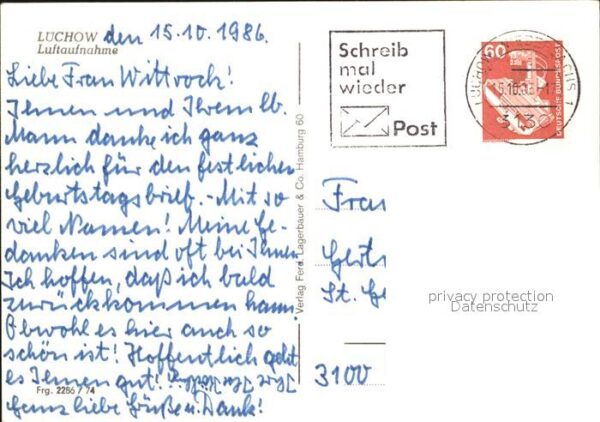 LÜCHOW
Luftaufnahme
den 15.10.1986.
Liebe Frau Wittrock!
Ihnen und Ihrem lb.
Mann danke ich ganz
herzlich für den festlichen
Geburtstagsbrief. - Mit so
viel Namen! Meine Ge-
danken sind oft bei Ihnen
Ich hoffen, daß ich bald
zurückkommen kann.
Obwohl es hier auch so
schön ist! Hoffentlich geht
es Ihnen gut! Ihre
Frg. 2286 / 74
Ganz liebe Grüße u. Dank!
Verlag Ferd. Lagerbauer & Co. Hamburg 60
Schreib
mal
wieder
Post
LÜCHOW
15.10.86
3130
1
60
DEUTSCHE BUNDESPOST
Frau
St. Ge
privacy protection
Datenschutz
3100